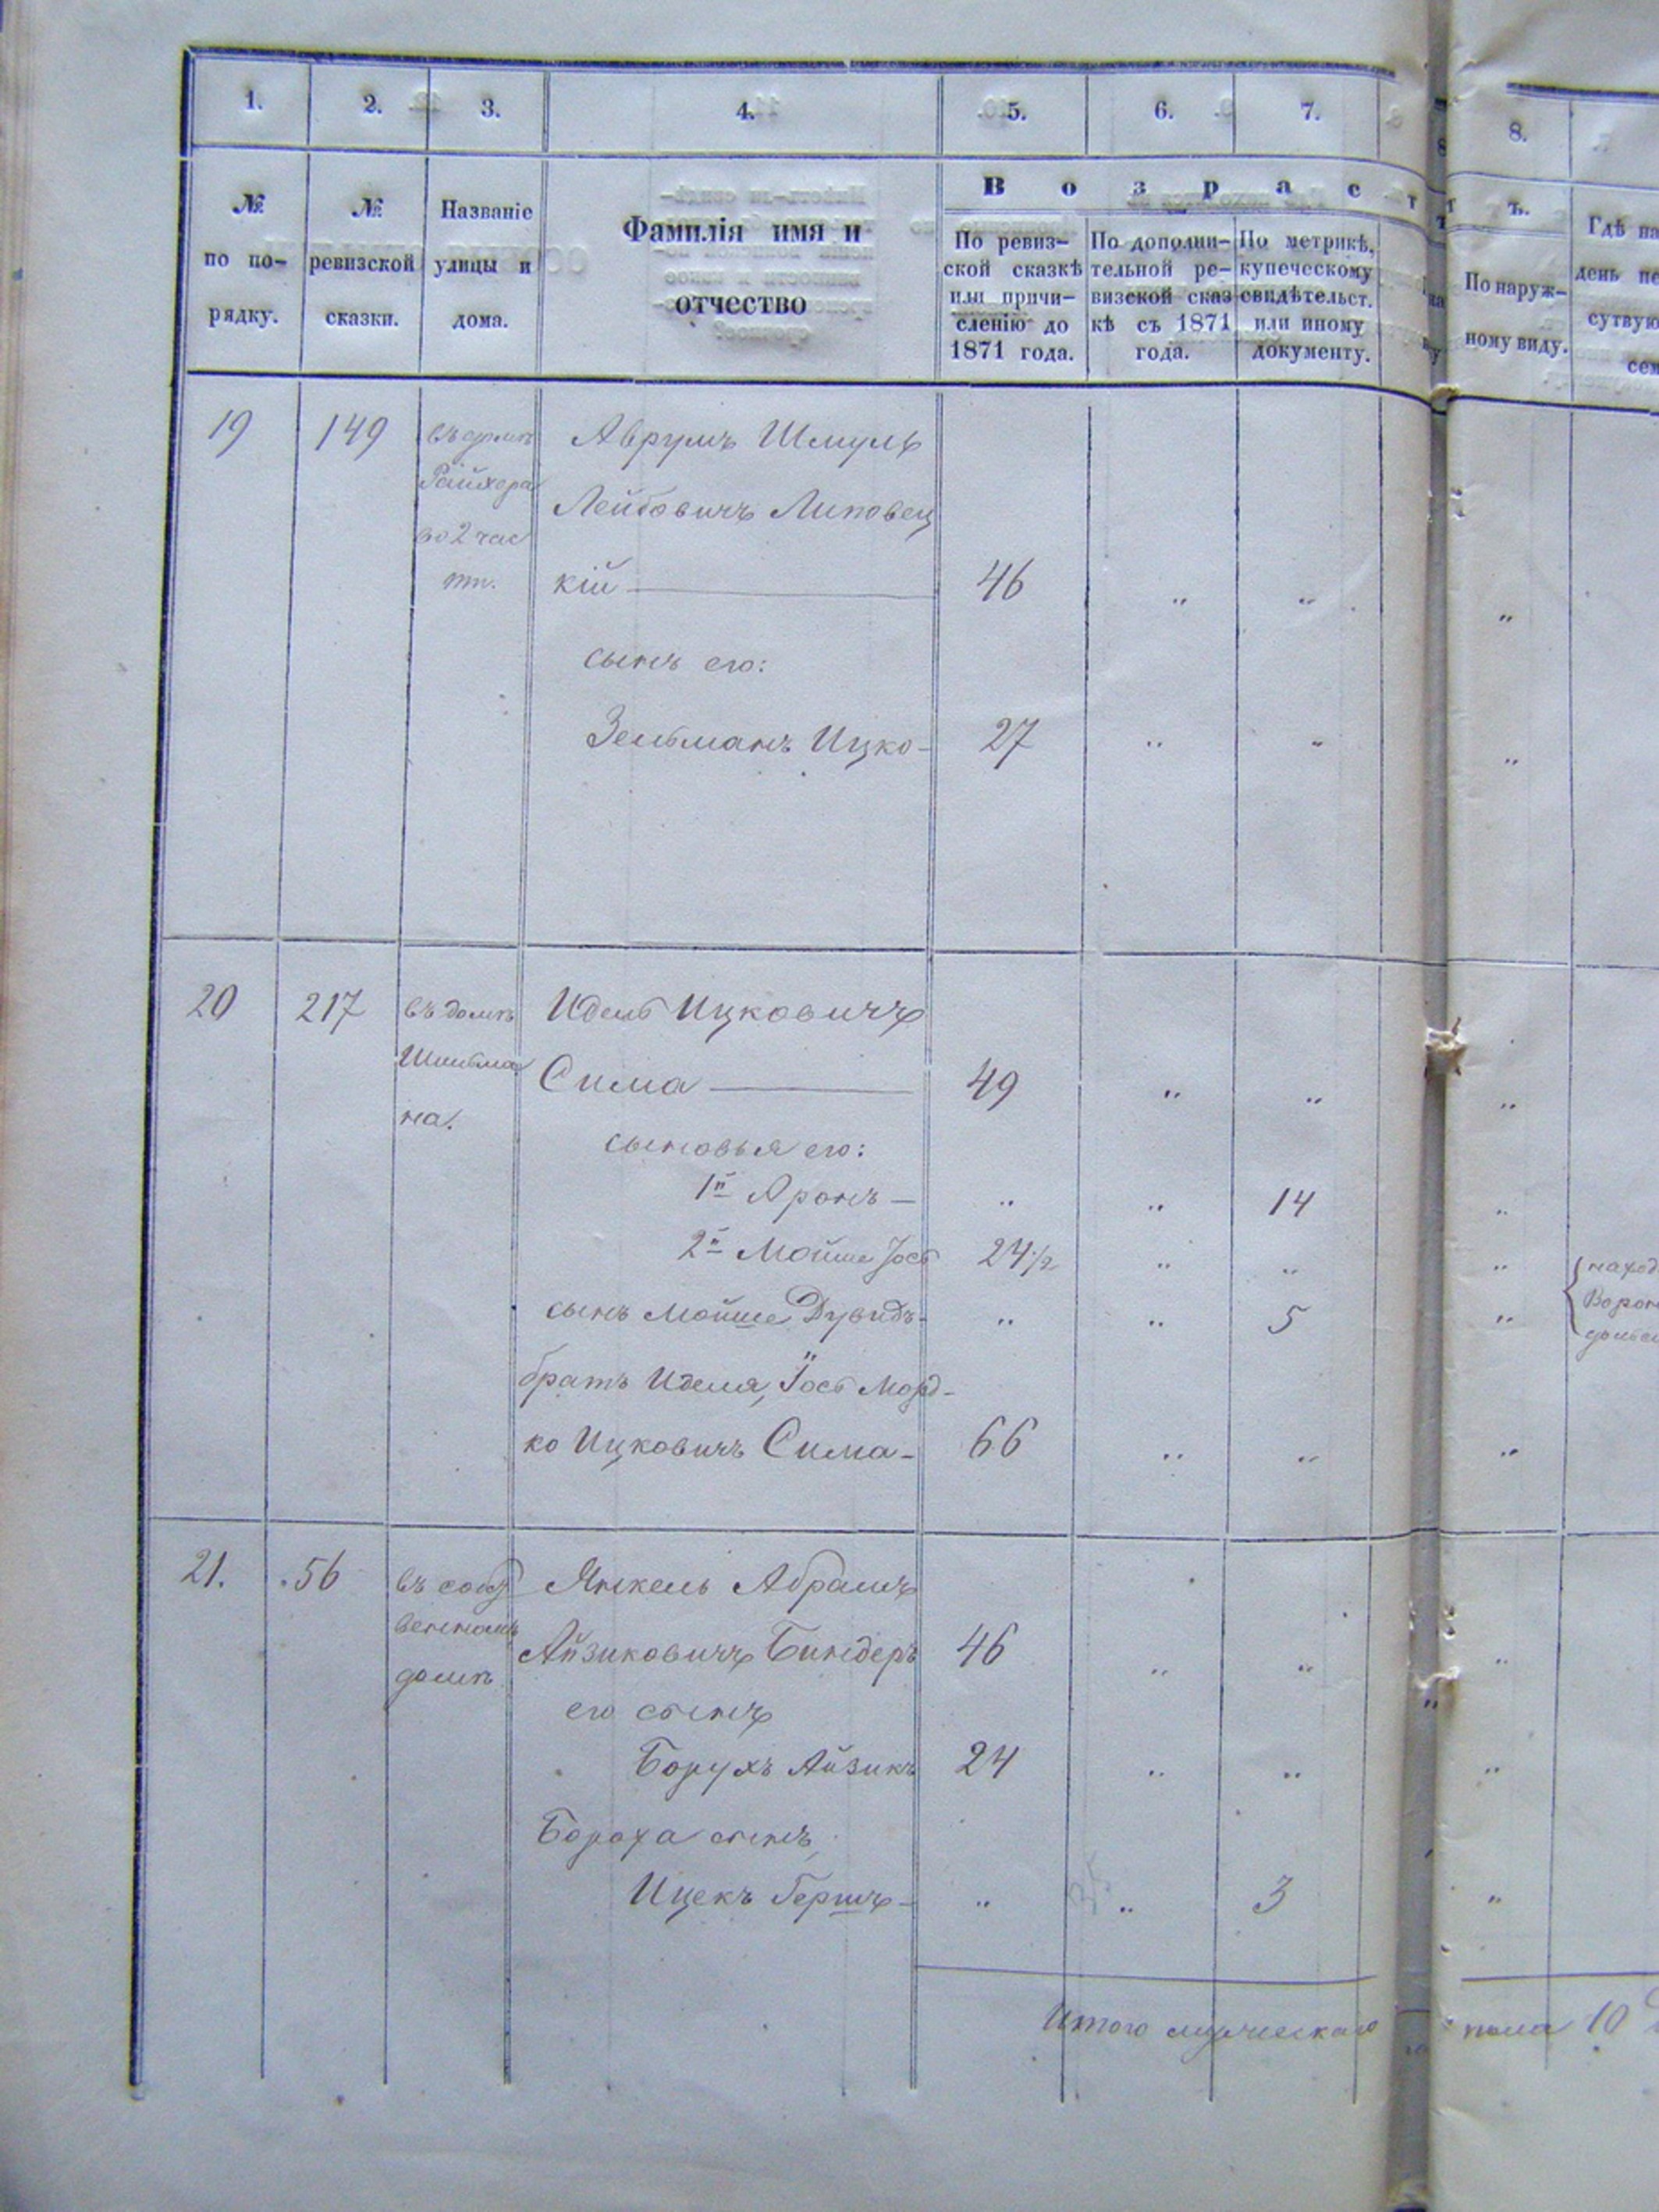 1. 2. 3. 4. 5. 6. 7. 8.
№ по по- рядку.
№ ревизской сказки.
Названіе улицы и дома.
Фамилія имя и отчество
В о з р а с т ъ.
По ревиз- ской сказкѣ или причи- сленію до 1871 года.
По дополни- тельной ре- визской сказ кѣ съ 1871 года.
По метрикѣ, купеческому свидѣтельст. или иному документу.
По наруж- ному виду.
Гдѣ на
день
сутвую
сем
19 149 въ домѣ Аврумъ Шмуль
Лейбовичъ Липовец
во 2 час
ти. кій 46 " " "
сынъ его:
Зельманъ Ицко- 27 " " "
20 217 въ домѣ Идель Ицковичъ
Шильма Сима 49 " " "
на. сыновья его:
1й Аронъ — " " 14 "
2й Мойше Іось 24 1/2 " " " наход
сынъ Мойше Дувидъ- " " 5 " Ворон
братъ Иделя, Іось Морд-
ко Ицковичъ Сима- 66 " " "
21. 56 въ собст Янкель Абрамъ
венномъ Айзиковичъ Биндеръ 46 " " "
домѣ его сынъ
Борухъ Айзикъ 24 " " "
Бороха сынъ,
Ицекъ Гершъ- " " 3 "
35
Итого мужескаго пола 10